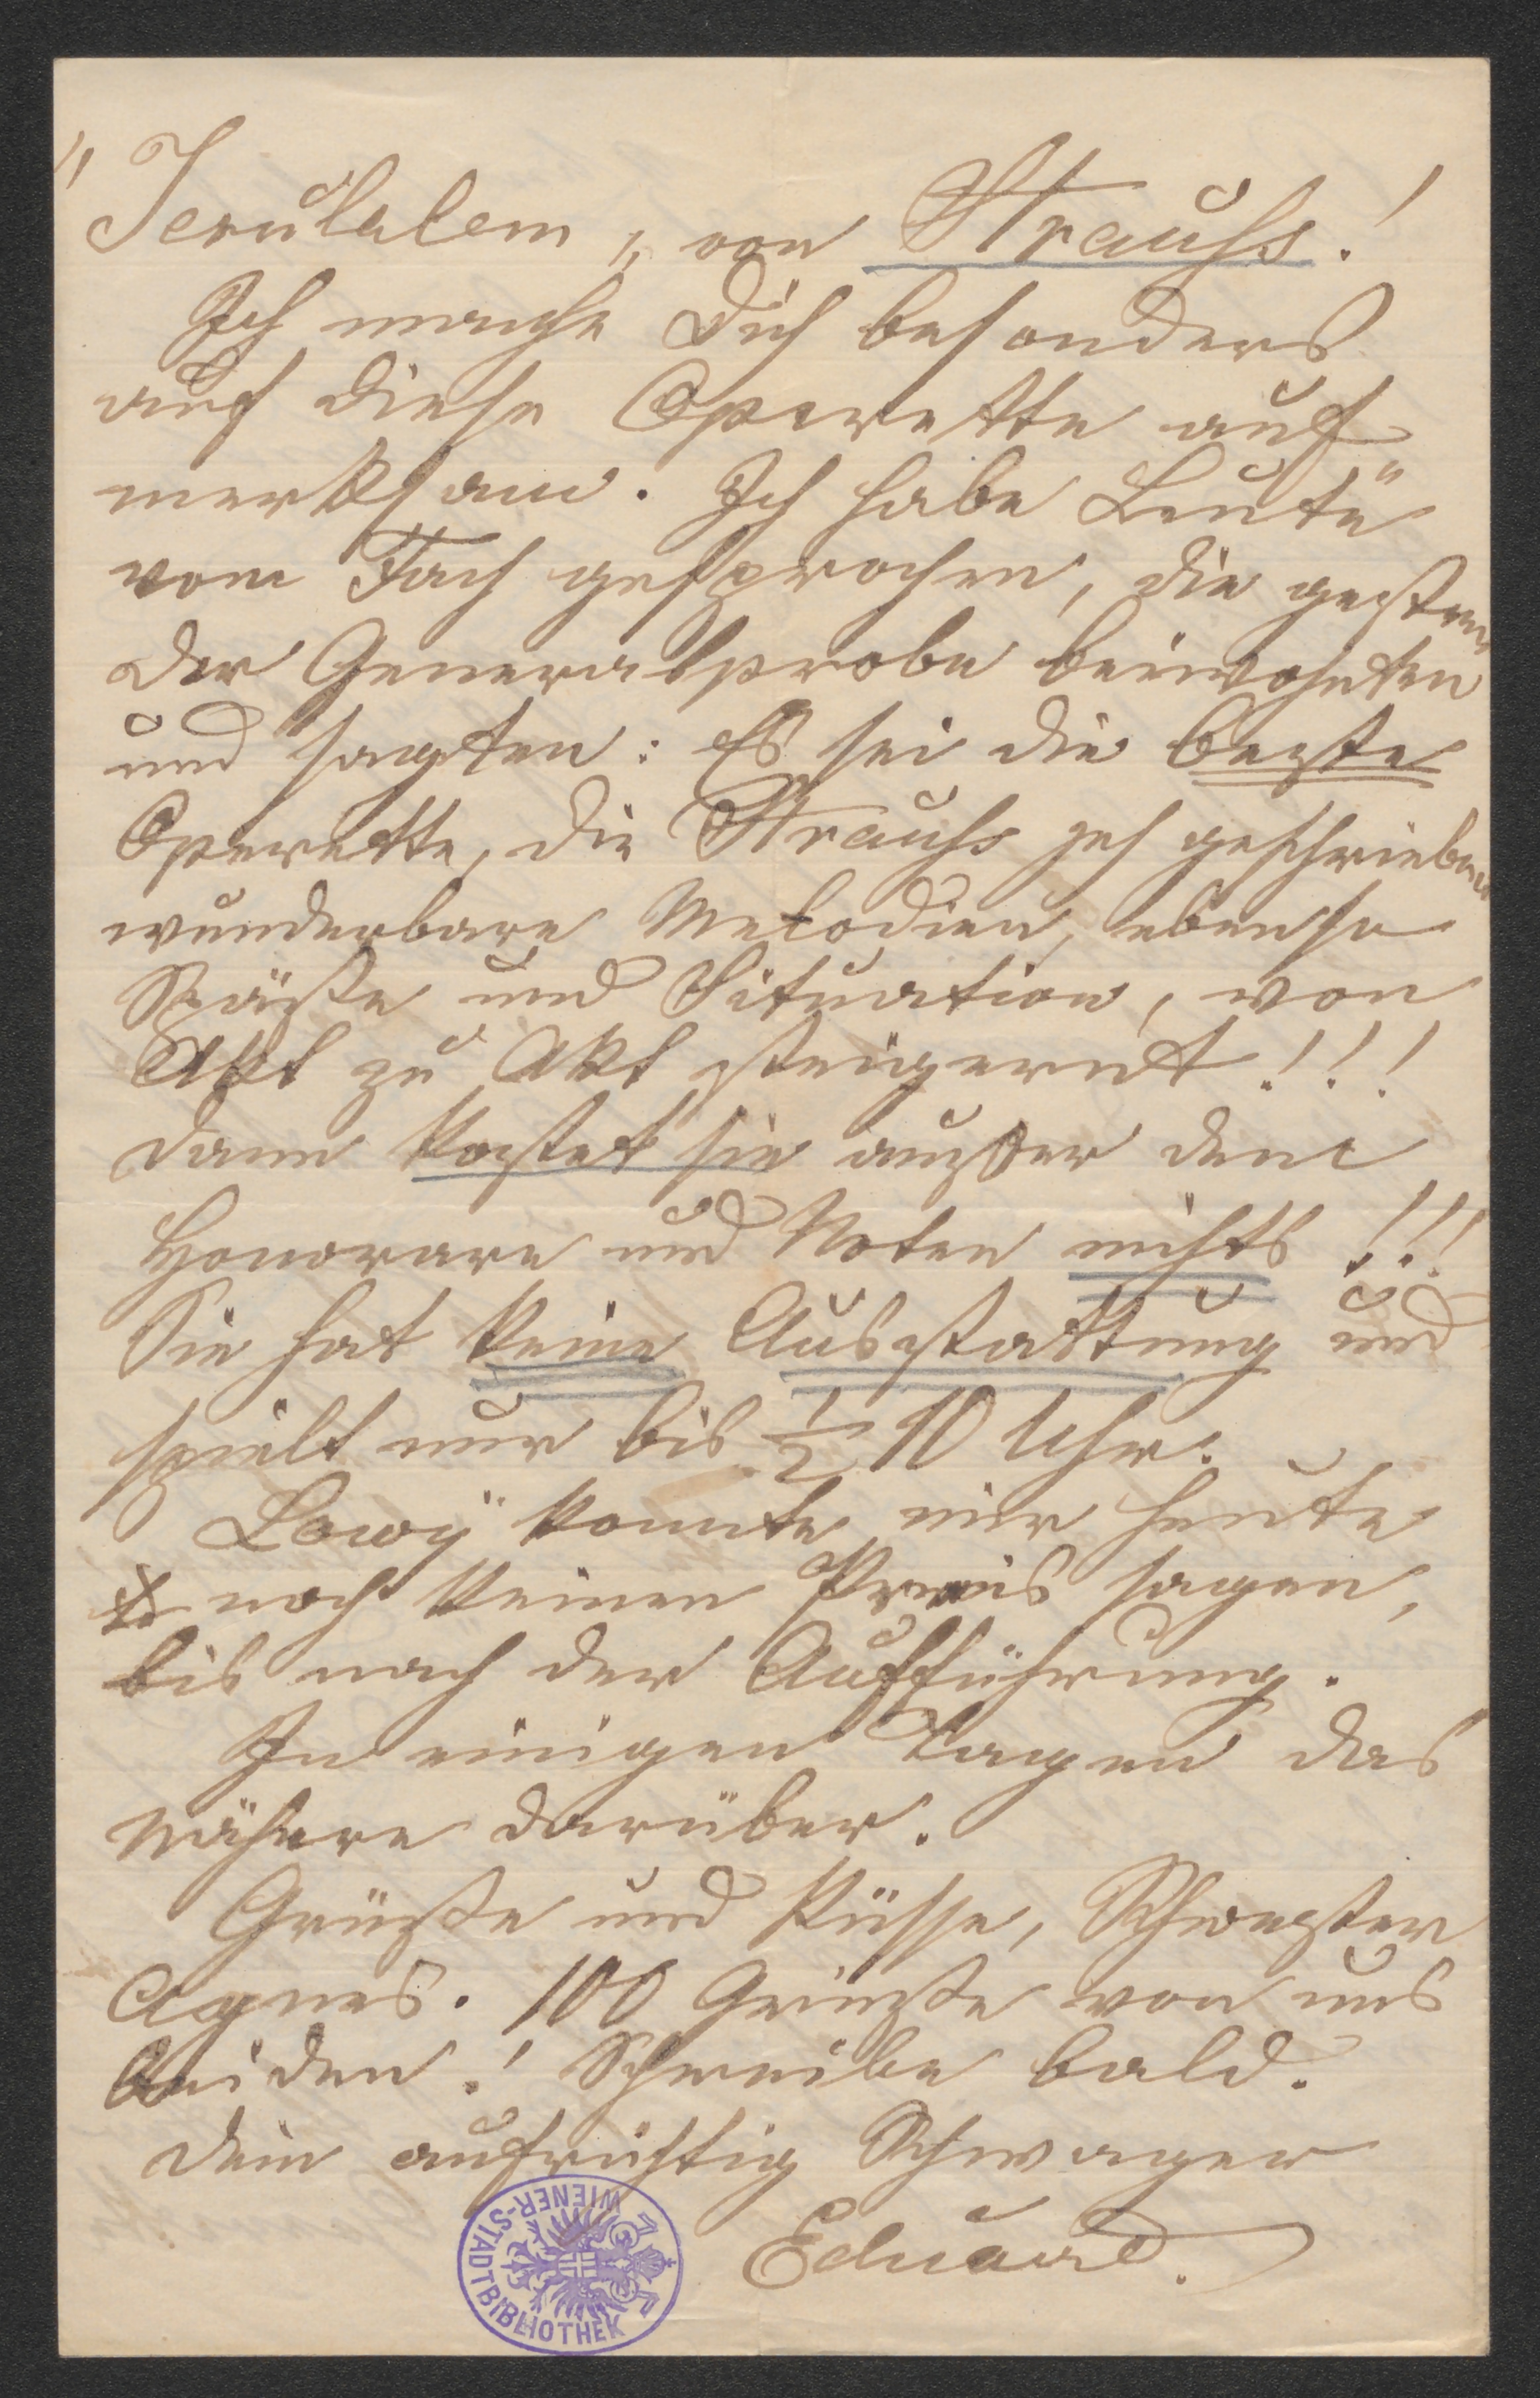 "Jerusalem" von Strauss!
Ich mache Dich besonders
auf diese Operette auf-
merksam. Ich habe Leute
vom Fach gesprochen, die gestern
der Generalprobe beiwohnten
und sagten: Es sei die beste
Operette, die Strauss je geschrieben
wunderbare Melodien, ebenso
Späße und Situation, von
Akt zu Akt steigernd!!!
dann kostet sie außer dem
Honorare und Noten nichts!!!
Sie hat keine Ausstattung und
spielt nur bis ½ 10 Uhr.
Löwy konnte mir heute
noch keinen Preis sagen,
bis nach der Aufführung.
In einigen Tagen das
Nähere darüber.
Grüße und Küsse, Schwester
Agnes. 100 Grüße von uns
beiden! Schreibe bald.
Dein aufrichtig Schwager
Eduard.
WIENER-STADTBIBLIOTHEK